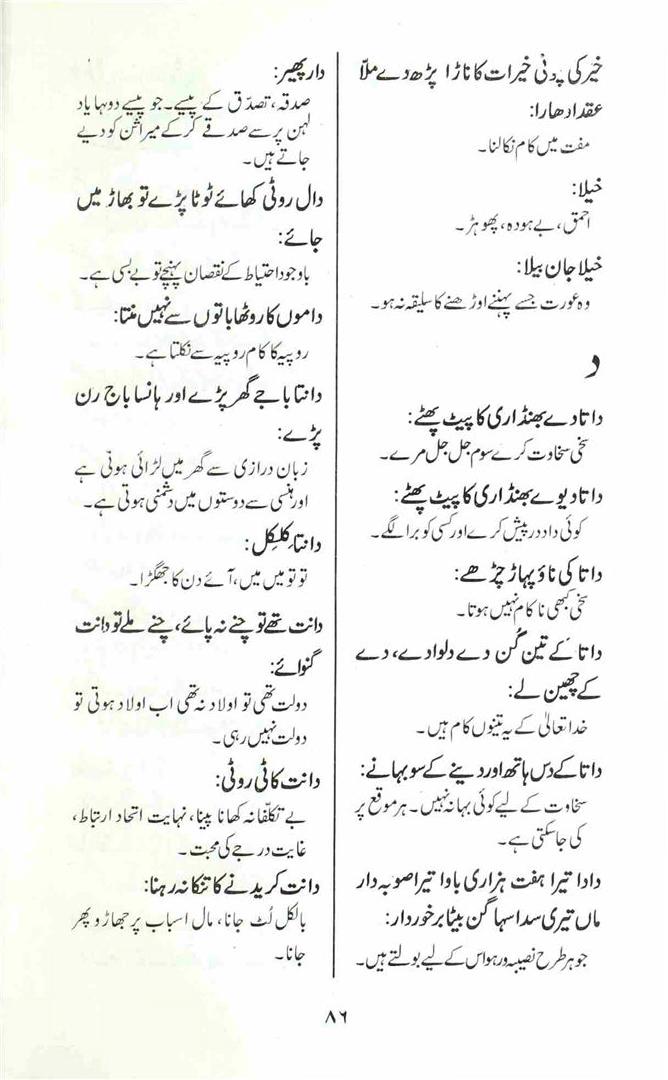 خیر کی پدنی خیرات کا ناڑا پڑھ دے ملّا
عقد ادھارا:
مفت میں کام نکالنا۔
خیلا:
احمق، بے ہودہ، پھوہڑ۔
خیلا جان بیلا:
وہ عورت جسے پہننے اوڑھنے کا سلیقہ نہ ہو۔
د
داتا دے بھنڈاری کا پیٹ پھٹے:
سخی سخاوت کرے سوم جل جل مرے۔
داتا دیوے بھنڈاری کا پیٹ پھٹے:
کوئی داد در پیش کرے اور کسی کو برا لگے۔
داتا کی ناؤ پہاڑ چڑھے:
سخی کبھی ناکام نہیں ہوتا۔
داتا کے تین گُن دے دلوادے، دے
کے چھین لے:
خدا تعالیٰ کے یہ تینوں کام ہیں۔
داتا کے دس ہاتھ اور دینے کے سو بہانے:
سخاوت کے لیے کوئی بہانہ نہیں۔ ہر موقع پر
کی جا سکتی ہے۔
دادا تیرا ہفت ہزاری باوا تیرا صوبہ دار
ماں تیری سدا سہاگن بیٹا برخوردار:
جو ہر طرح نصیبہ ور ہو اس کے لیے بولتے ہیں۔
دار پھیر:
صدقہ، تصدّق کے پیسے۔ جو پیسے دوہا یا د
لہن پر سے صدقے کر کے میراثن کو دیے
جاتے ہیں۔
دال روٹی کھائے ٹوٹا پڑے تو بھاڑ میں
جائے:
باوجود احتیاط کے نقصان پہنچے تو بے بسی ہے۔
داموں کا روٹھا باتوں سے نہیں منتا:
روپیہ کا کام روپیہ سے نکلتا ہے۔
دانتا باجے گھر پڑے اور ہانسا باج رن
پڑے:
زبان درازی سے گھر میں لڑائی ہوتی ہے
اور ہنسی سے دوستوں میں دشمنی ہوتی ہے۔
دانتا کِلکِل:
تو تو میں میں، آئے دن کا جھگڑا۔
دانت تھے تو چنے نہ پائے، چنے ملے تو دانت
گنوائے:
دولت تھی تو اولاد نہ تھی اب اولاد ہوتی تو
دولت نہیں رہی۔
دانت کاٹی روٹی:
بے تکلّفانہ کھانا پینا، نہایت اتحاد ارتباط،
غایت درجے کی محبت۔
دانت کریدنے کا تنکا نہ رہنا:
بالکل لُٹ جانا، مال اسباب پر جھاڑو پھر
جانا۔
۸۶